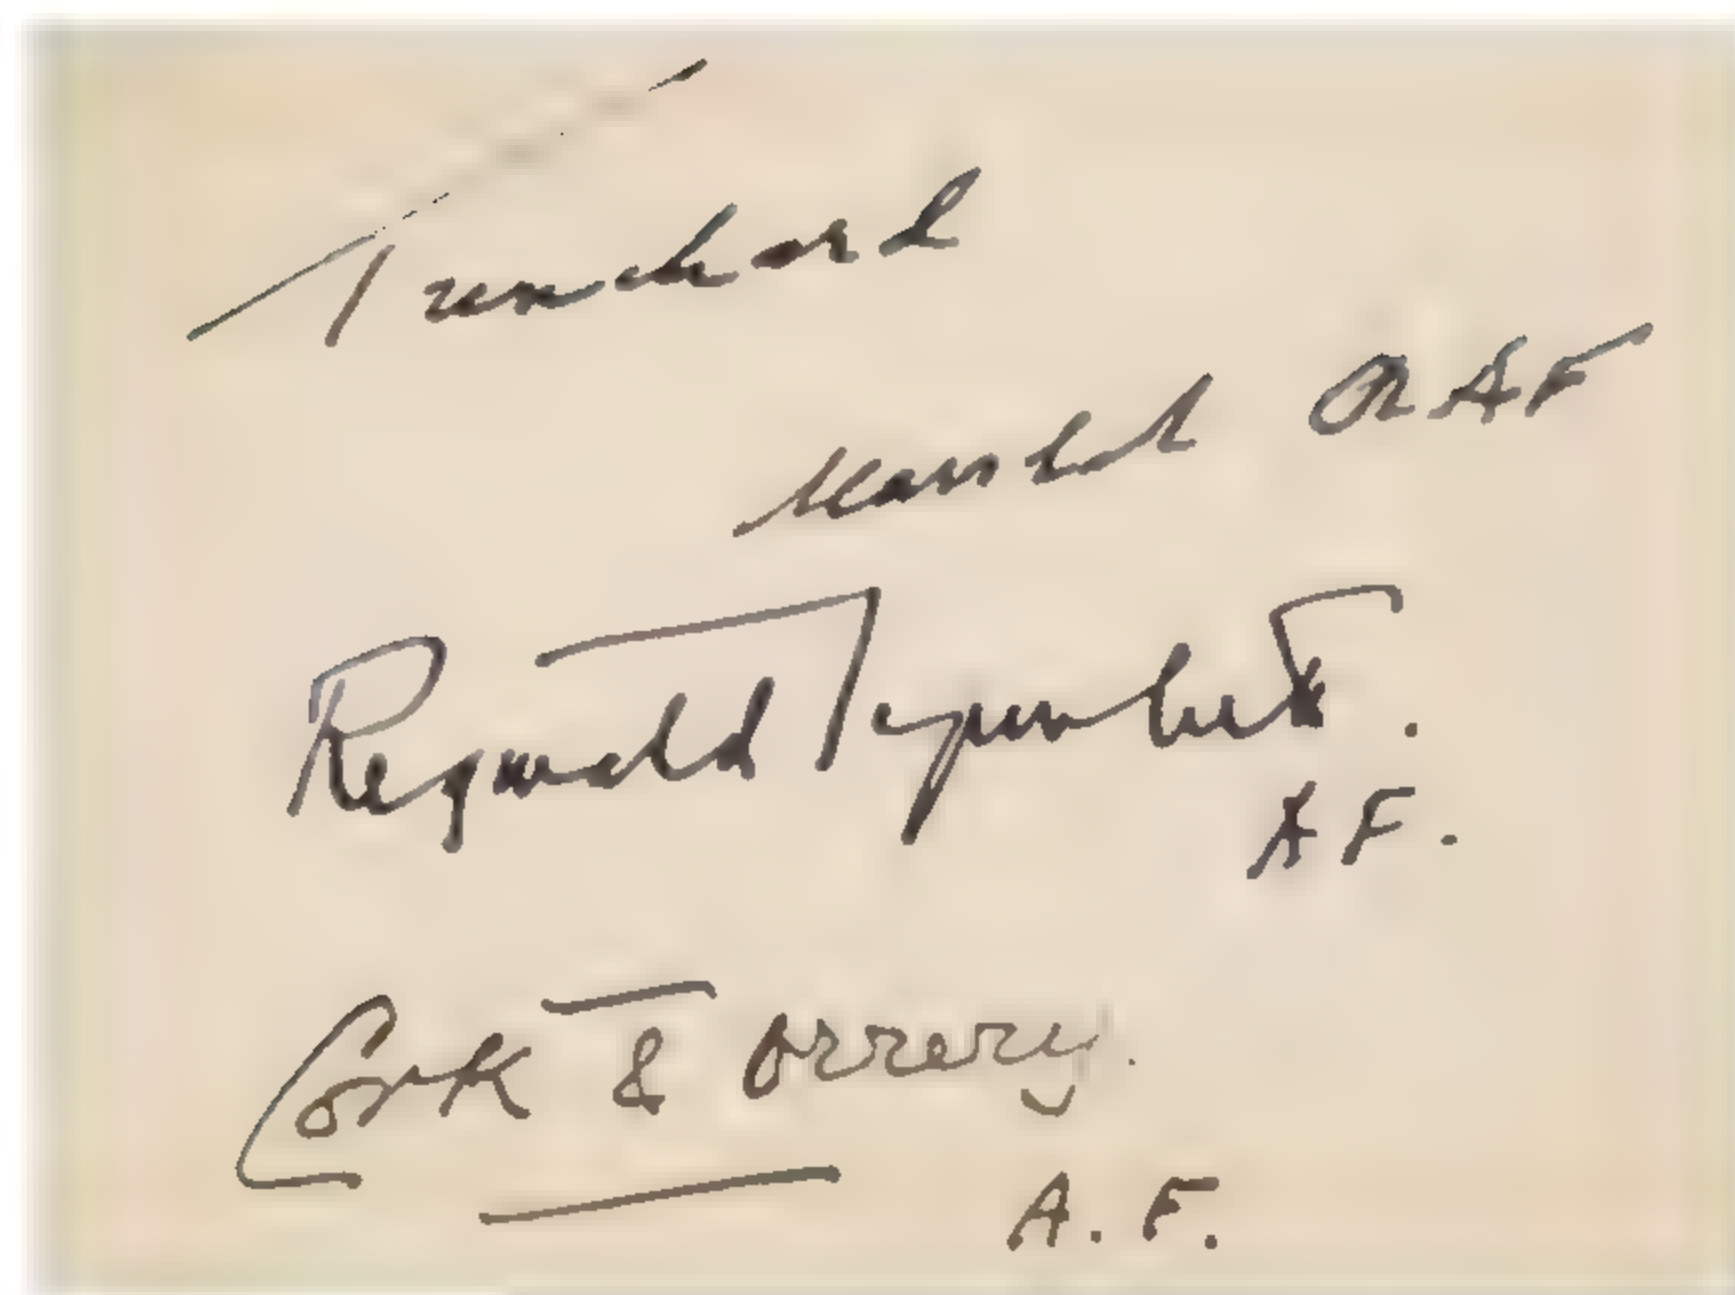 Trenchard
Marshal RAF
Reginald Tyrwhitt.
A F.
Cork & Orrery.
A. F.